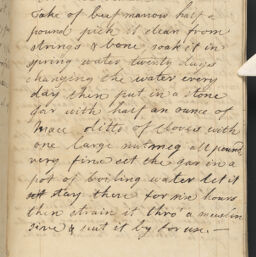 Take of beef marrow half a
pound pick it clean from
strings & bone, soak it in
spring water twenty days
changing the water every
day. then put in a stone
jar with half an ounce of
mace ditto of cloves with
one large nutmeg all pound
very fine set the jar in a
pot of boiling water let it
stay there for six hours
then strain it thro a muslin
sive & put it by for use. —